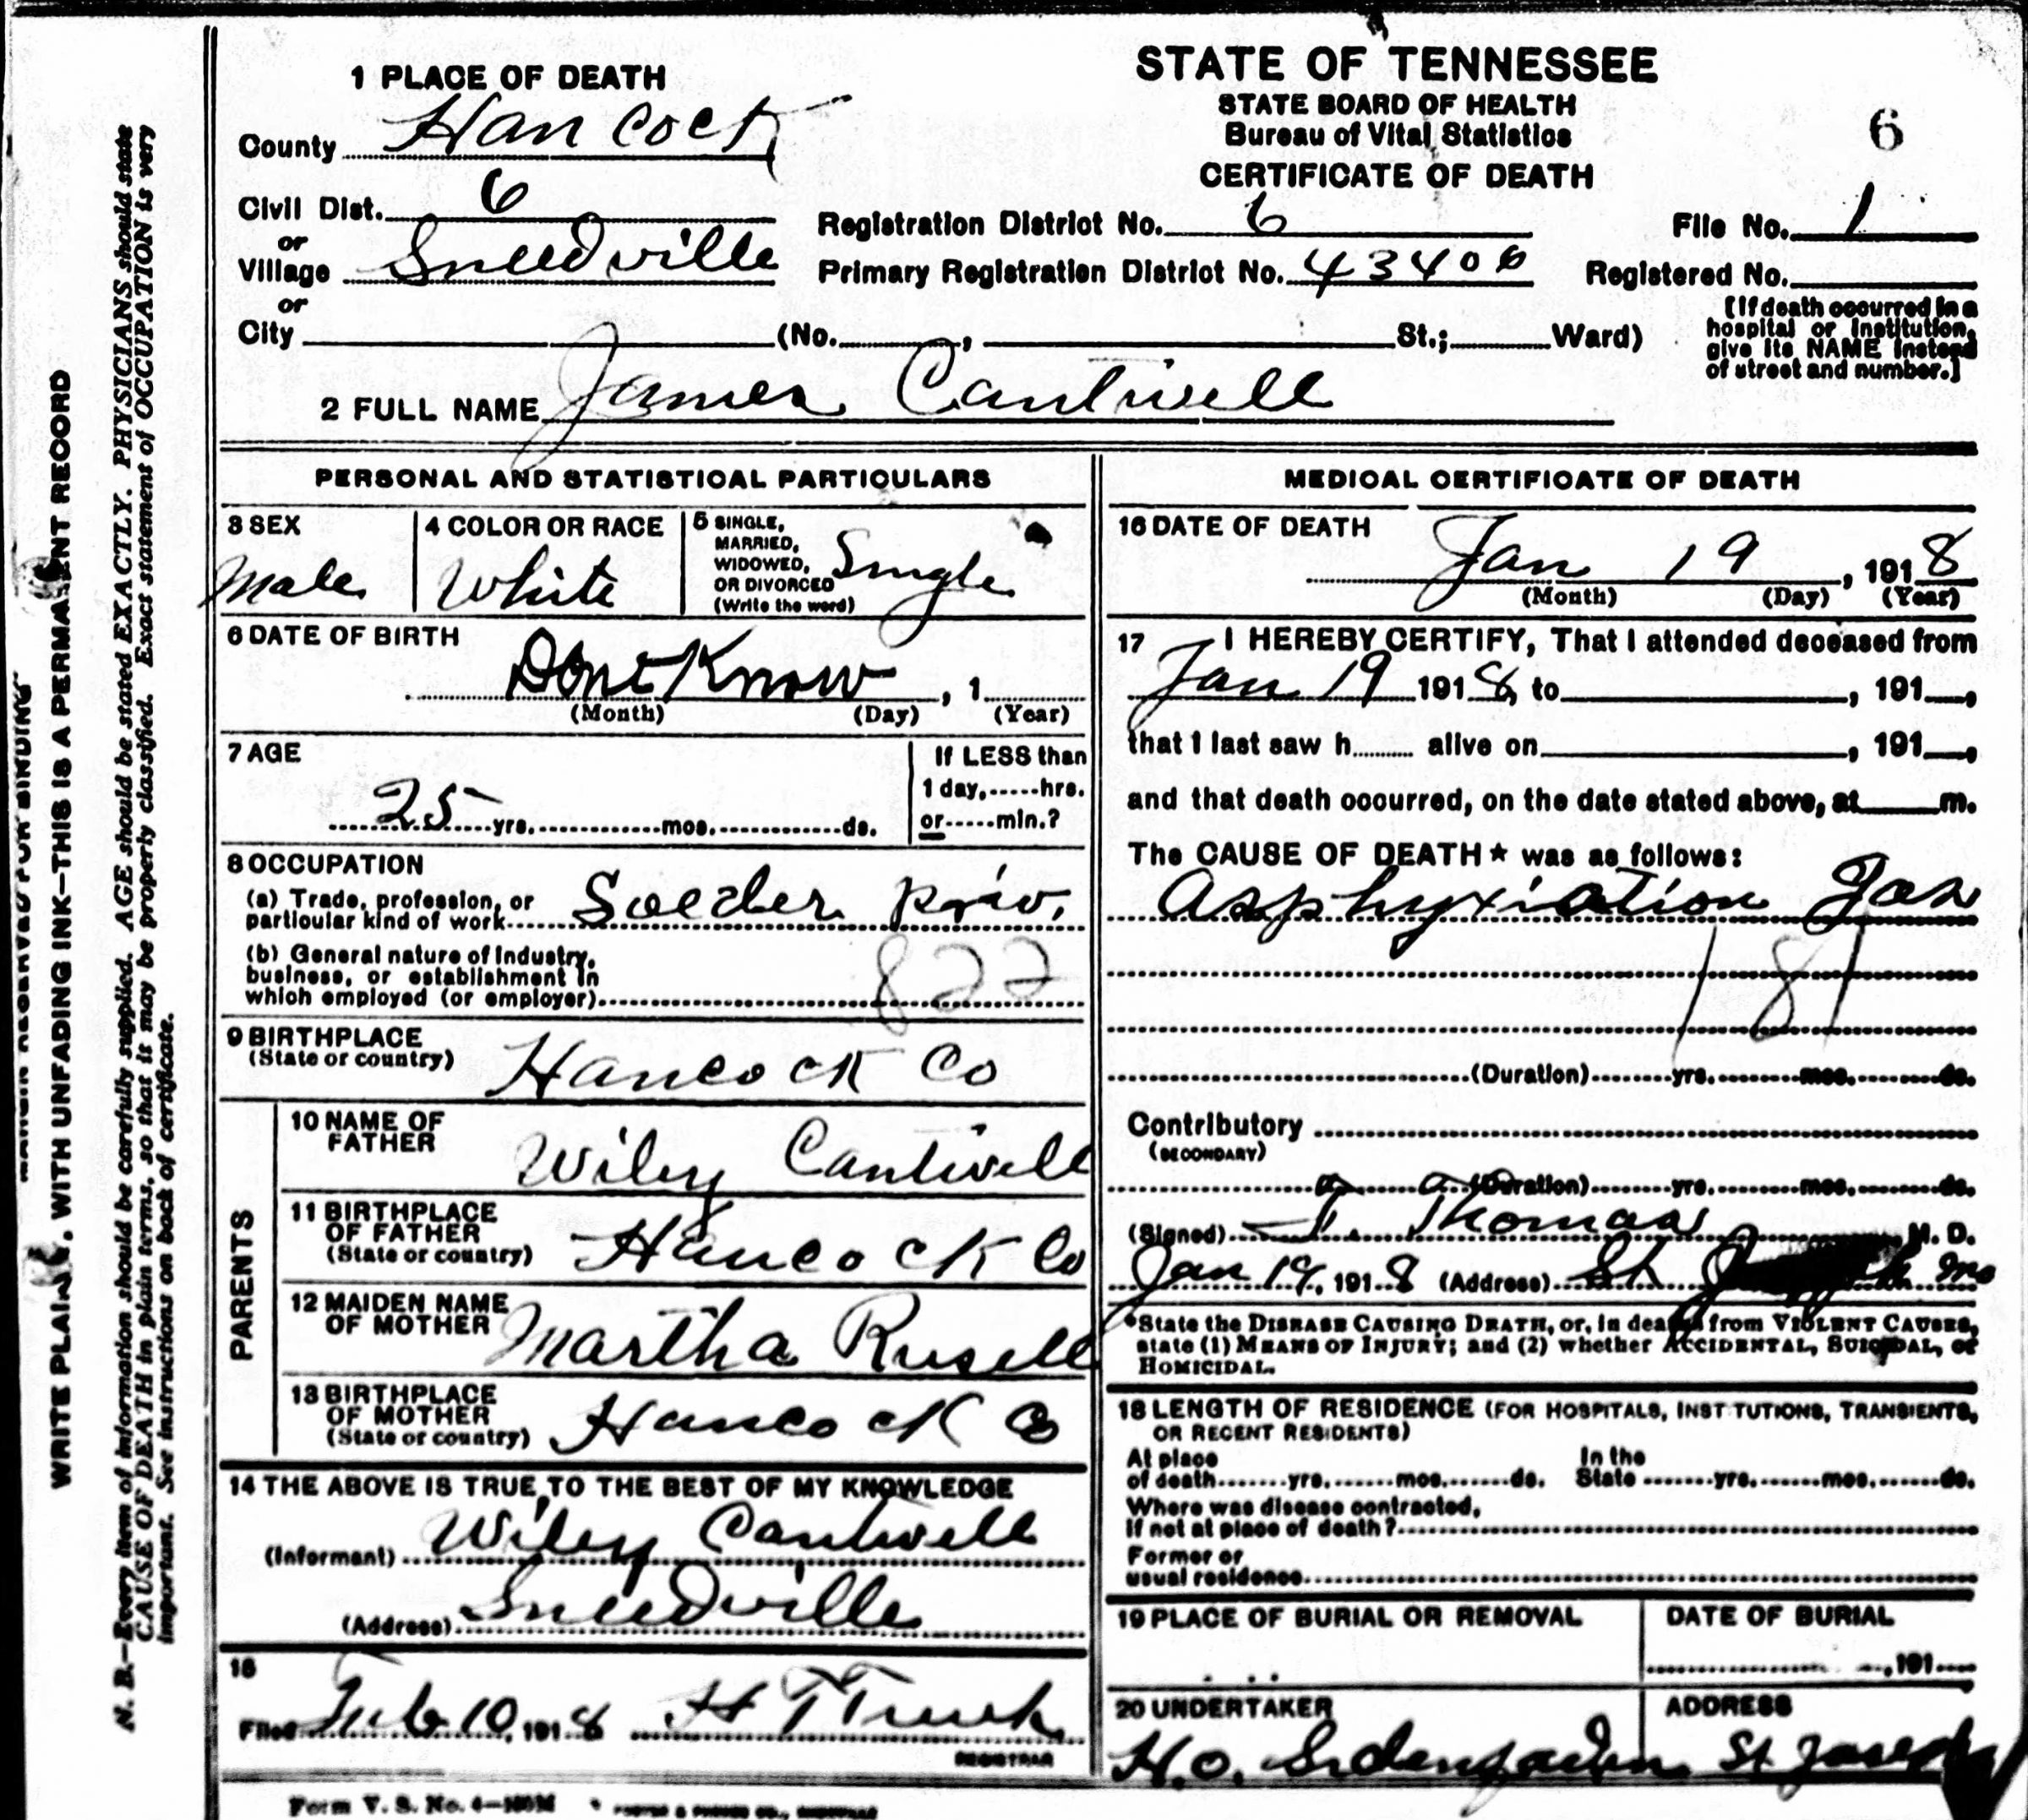 1 PLACE OF DEATH
County Hancock
Civil Dist. 6
or
Village Sneedville
or
City (No. , St.; Ward)
STATE OF TENNESSEE
STATE BOARD OF HEALTH
Bureau of Vital Statistics
CERTIFICATE OF DEATH
6
Registration District No. 6
File No. 1
Primary Registration District No. 43406
Registered No.
[If death occurred in a
hospital or institution,
give its NAME instead
of street and number.]
2 FULL NAME James Cantwell
PERSONAL AND STATISTICAL PARTICULARS
3 SEX
Male
4 COLOR OR RACE
White
5 SINGLE,
MARRIED,
WIDOWED,
OR DIVORCED
(Write the word)
Single
6 DATE OF BIRTH
Dont Know , 1
(Month) (Day) (Year)
7 AGE
25 yrs. mos. ds.
If LESS than
1 day, hrs.
or min.?
8 OCCUPATION
(a) Trade, profession, or
particular kind of work Soelder priv.
(b) General nature of Industry,
business, or establishment in
which employed (or employer)
822
9 BIRTHPLACE
(State or country) Hancock Co
PARENTS
10 NAME OF
FATHER Wiley Cantwell
11 BIRTHPLACE
OF FATHER
(State or country) Hancock Co
12 MAIDEN NAME
OF MOTHER Martha Rusell
13 BIRTHPLACE
OF MOTHER
(State or country) Hancock Co
14 THE ABOVE IS TRUE TO THE BEST OF MY KNOWLEDGE
(Informant) Wiley Cantwell
(Address) Sneedville
15
Filed Feb 10, 1918 H T
REGISTRAR
MEDICAL CERTIFICATE OF DEATH
16 DATE OF DEATH
Jan 19 , 1918
(Month) (Day) (Year)
17 I HEREBY CERTIFY, That I attended deceased from
Jan 19 1918, to , 191 ,
that I last saw h alive on , 191 ,
and that death occurred, on the date stated above, at m.
The CAUSE OF DEATH* was as follows:
Asphyxiation Gas
181
(Duration) yrs. mos. ds.
Contributory
(SECONDARY)
(Duration) yrs. mos. ds.
(Signed) Thomas M. D.
Jan 19, 1918 (Address) St Mo
*State the DISEASE CAUSING DEATH, or, in deaths from VIOLENT CAUSES,
state (1) MEANS OF INJURY; and (2) whether ACCIDENTAL, SUICIDAL, or
HOMICIDAL.
18 LENGTH OF RESIDENCE (FOR HOSPITALS, INSTITUTIONS, TRANSIENTS,
OR RECENT RESIDENTS)
At place
of death yrs. mos. ds.
In the
State yrs. mos. ds.
Where was disease contracted,
If not at place of death?
Former or
usual residence
19 PLACE OF BURIAL OR REMOVAL
DATE OF BURIAL
, 191
20 UNDERTAKER
H.O. Sidenfaden
ADDRESS
St Joseph
Form V. S. No. 4
MARGIN RESERVED FOR BINDING
WRITE PLAINLY, WITH UNFADING INK—THIS IS A PERMANENT RECORD
N. B.—Every item of information should be carefully supplied. AGE should be stated EXACTLY. PHYSICIANS should state
CAUSE OF DEATH in plain terms, so that it may be properly classified. Exact statement of OCCUPATION is very
important. See instructions on back of certificate.